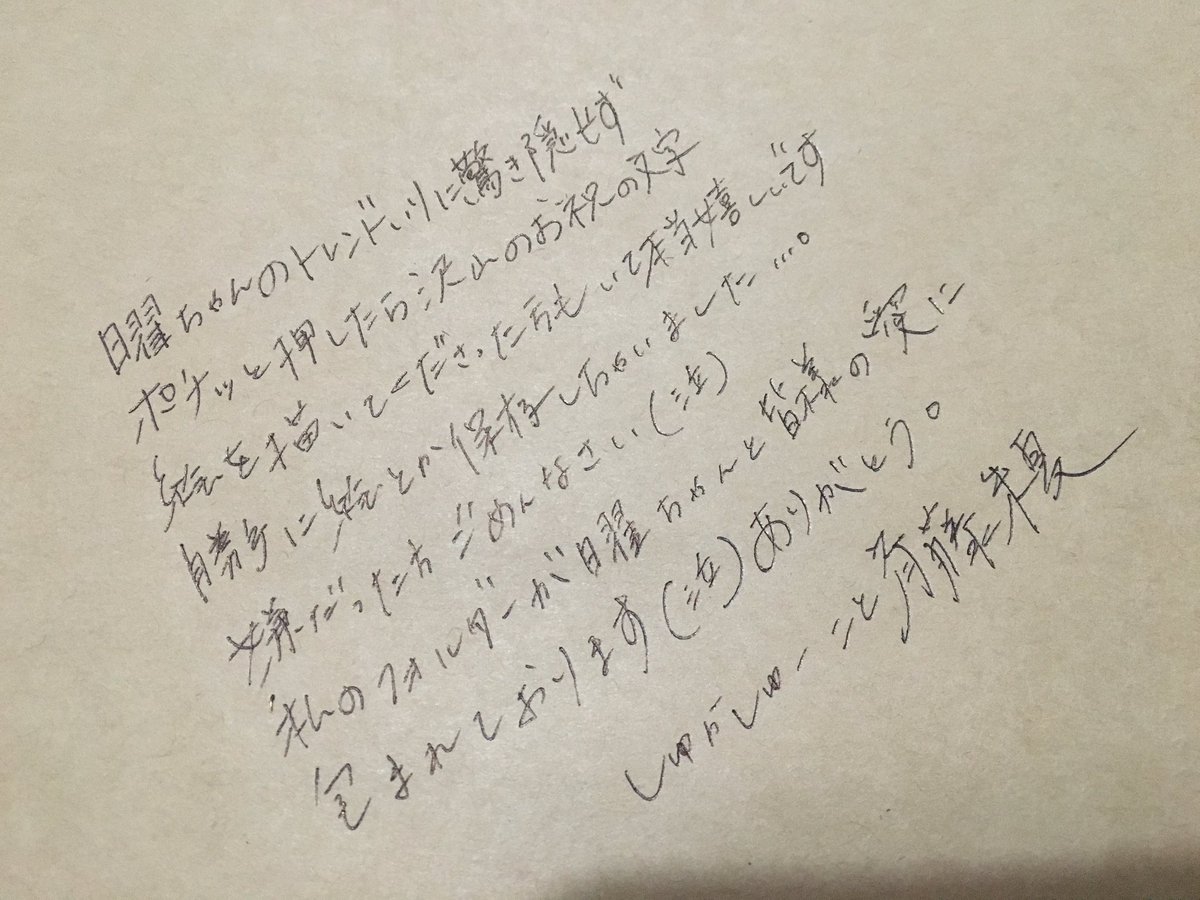 曜ちゃんのトレンド入りに驚き隠せず
ポチッと押したら沢山のお祝の文字
絵を描いてくださった方もいて本当嬉しいです
勝手に絵とか保存しちゃいました…。
嫌だった方ごめんなさい(泣)
私のフォルダーが曜ちゃんと皆様の愛に
包まれております(泣)ありがとう。
しゅかしゅーこと斉藤朱夏